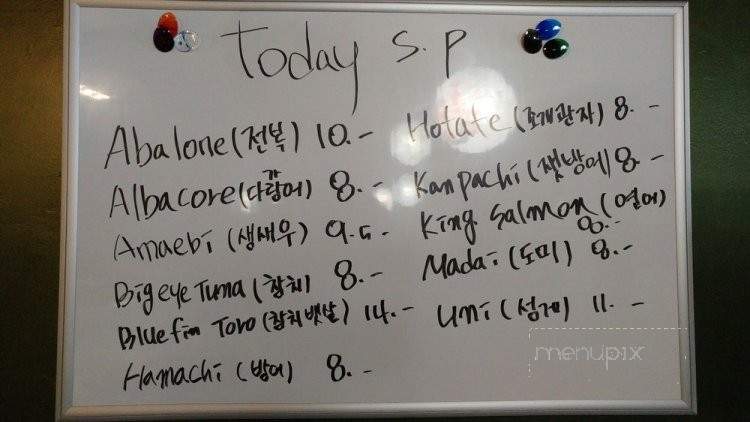 Today S.P
Abalone (전복) 10.-
Albacore (다랑어) 8.-
Amaebi (생새우) 9.5-
Bigeye Tuna (참치) 8.-
Bluefin Toro (참치뱃살) 14.-
Hamachi (방어) 8.-
Hotate (조개관자) 8.-
Kanpachi (잿방어) 8.-
King Salmon (연어)
8.-
Madai (도미) 8.-
Uni (성게) 11.-
menupix